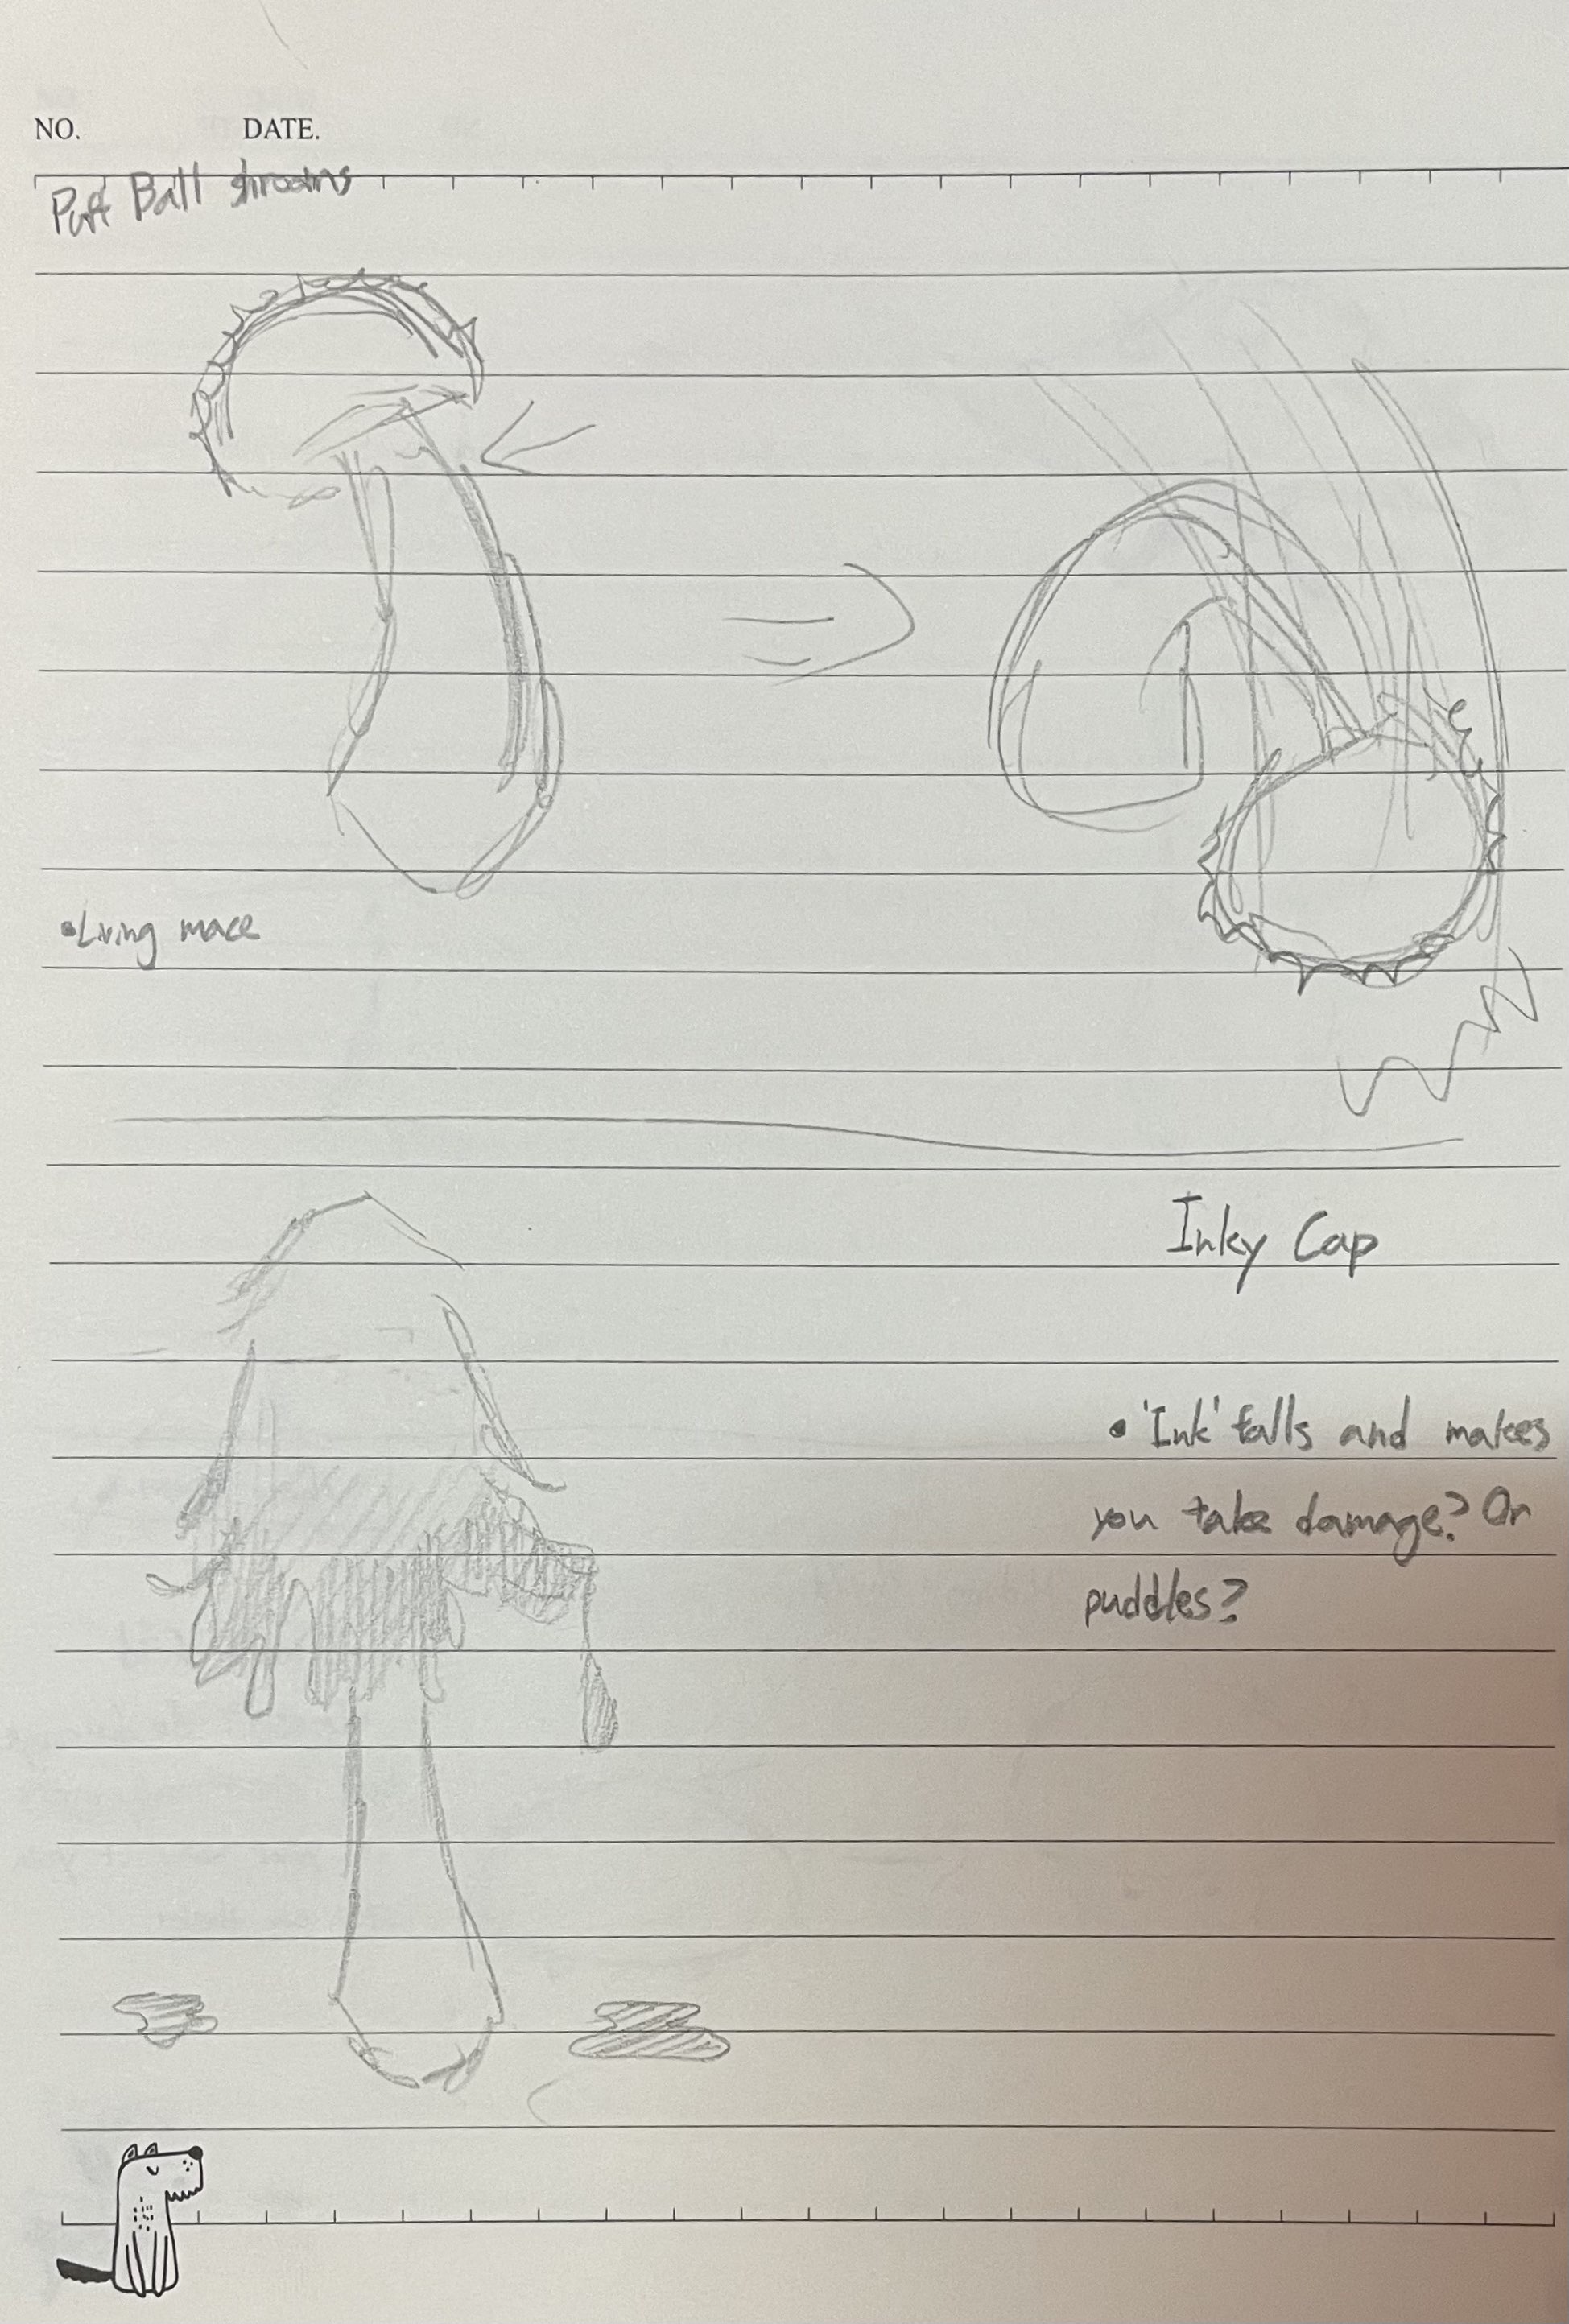 NO. DATE.
Puff Ball shrooms
•Living mace
Inky Cap
• 'Ink' falls and makes
you take damage? Or
puddles?